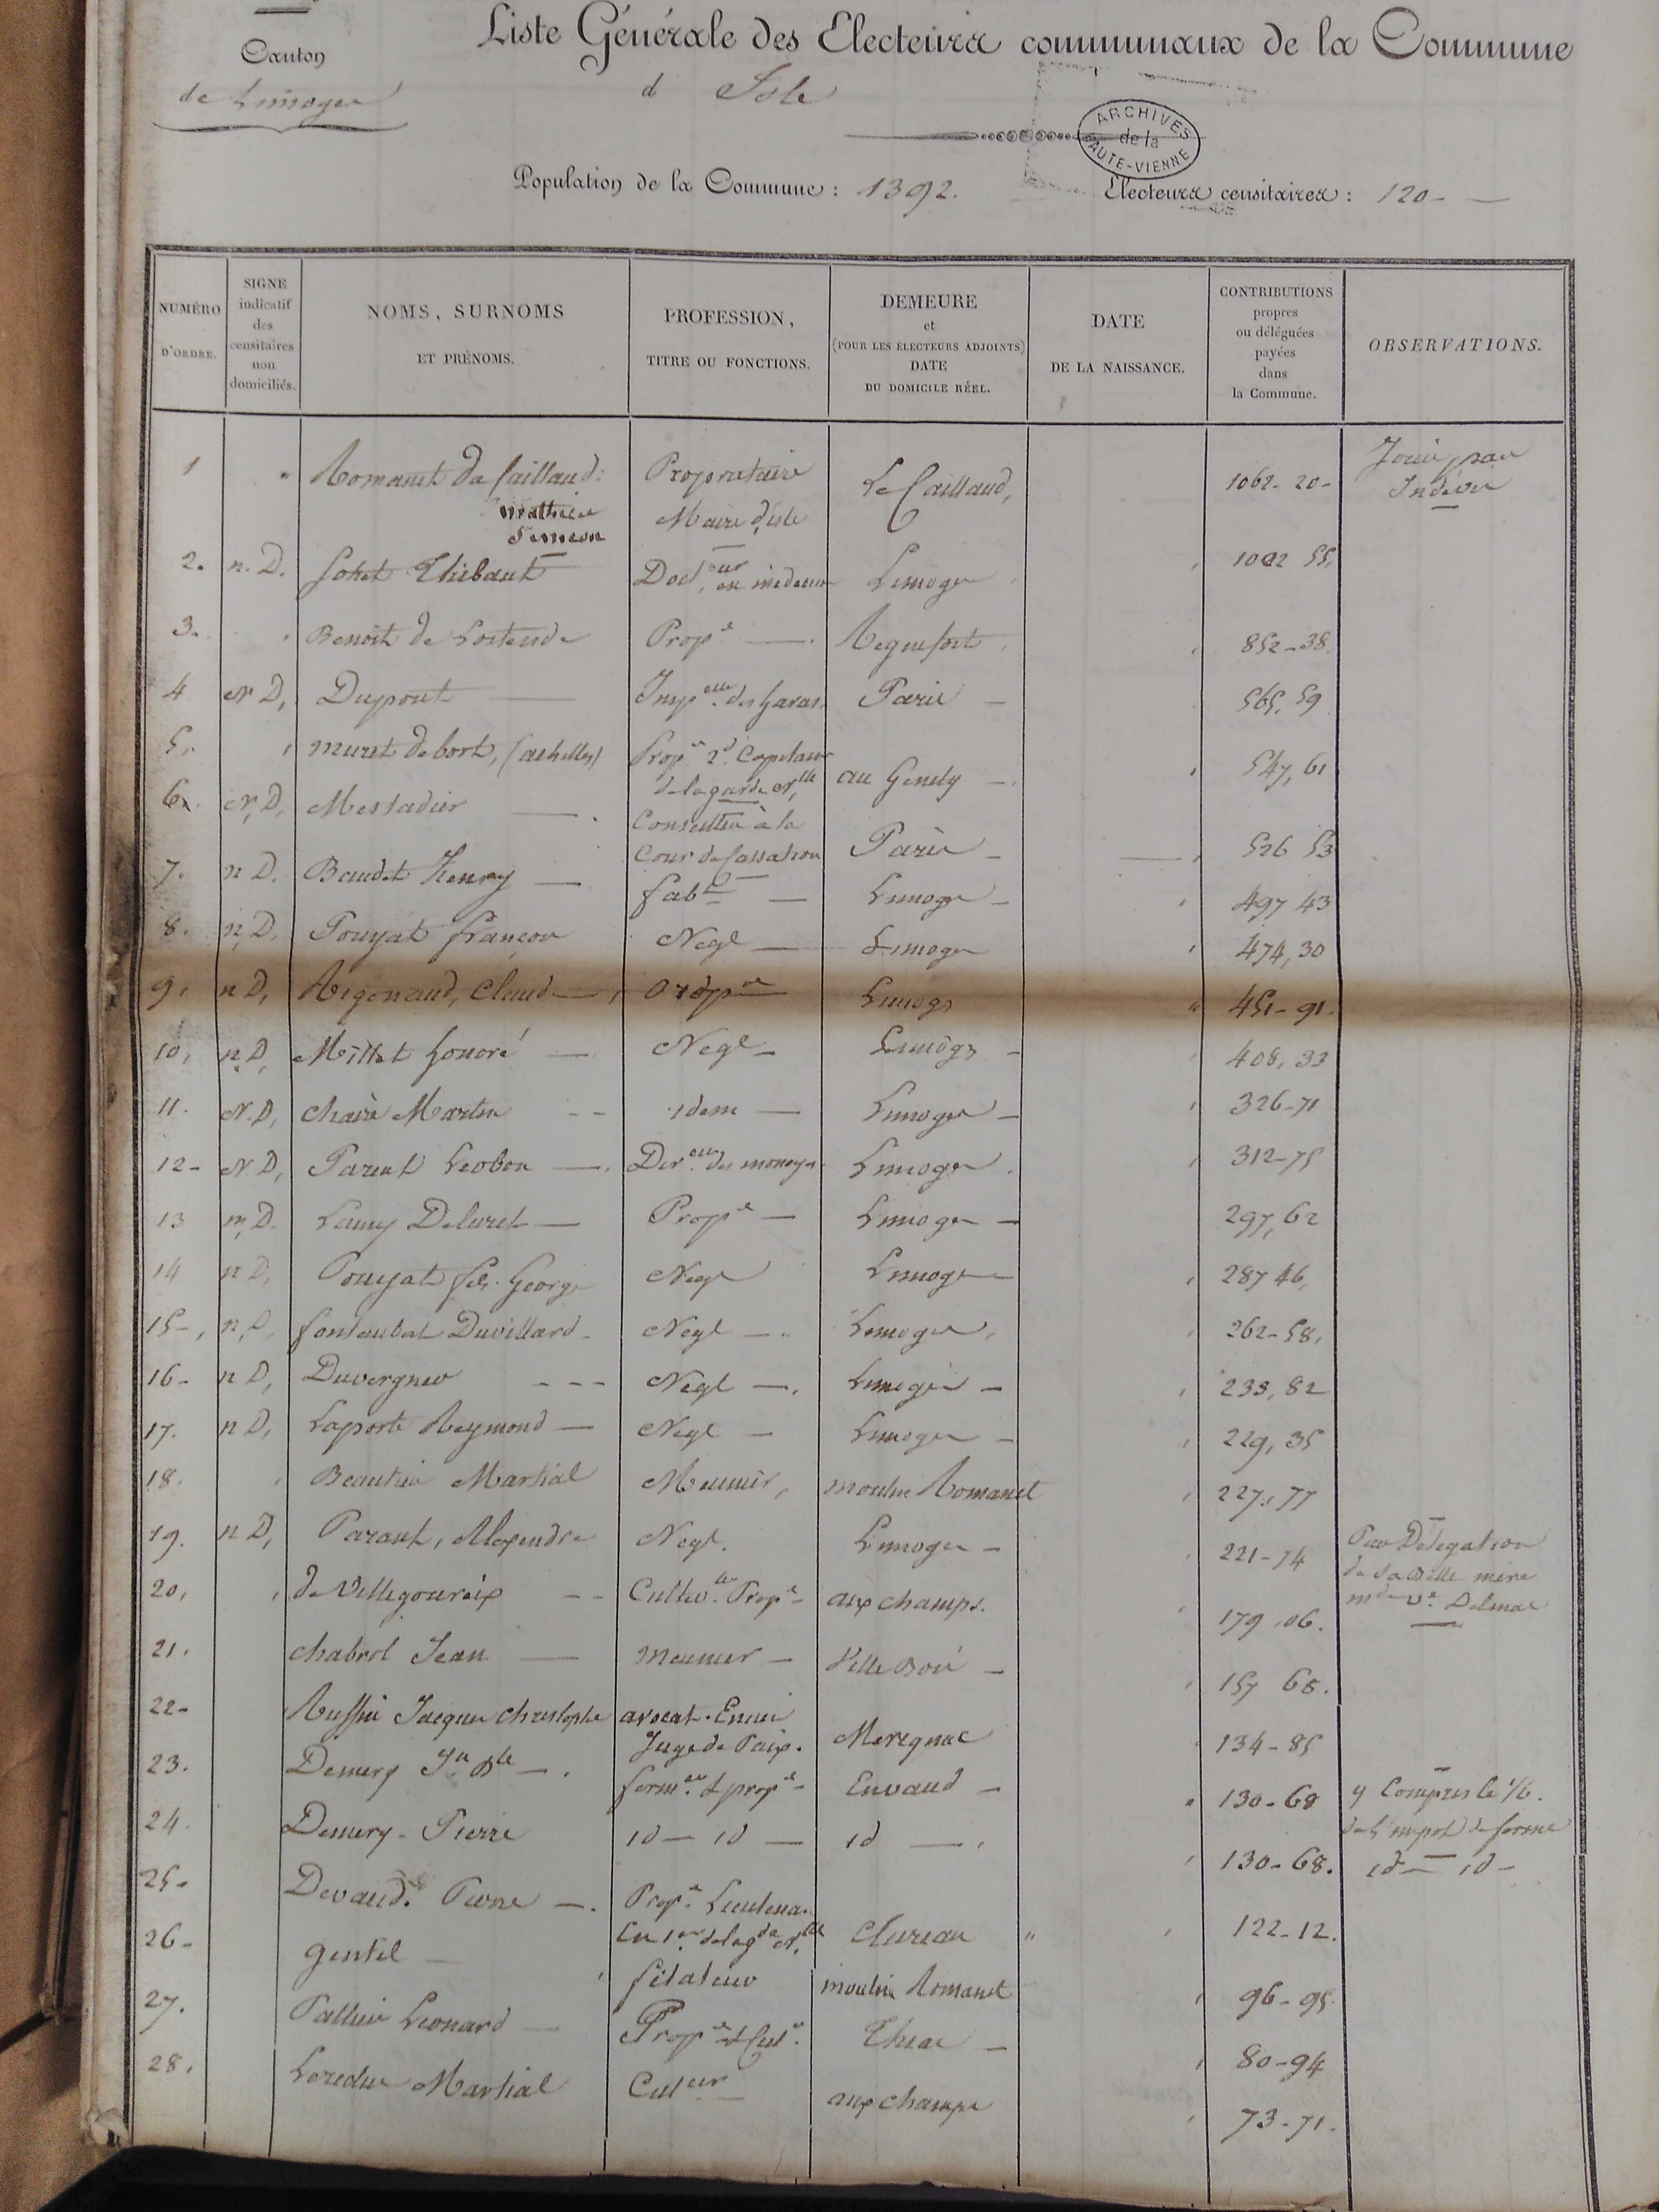 Canton
de Limoges
Liste Générale des Electeurs communaux de la Commune
d Isle
ARCHIVES
de la
HAUTE-VIENNE
Population de la Commune : 1392.
Electeurs censitaires : 120 -
NUMÉRO D'ORDRE.
SIGNE indicatif des censitaires non domiciliés.
NOMS, SURNOMS ET PRÉNOMS.
PROFESSION, TITRE OU FONCTIONS.
DEMEURE et (POUR LES ÉLECTEURS ADJOINTS) DATE DU DOMICILE RÉEL.
DATE DE LA NAISSANCE.
CONTRIBUTIONS propres ou déléguées payées dans la Commune.
OBSERVATIONS.
1 Romanet du Caillaud: Propriétaire Le Caillaud, 1062-20-
Maire d'isle
2. n. D. Thibaut Doct.eur en médecine Limoges 1002 55.
3. Benoit de Lostende Prop.e Reguefort 852-38.
4 N D, Dupont Insp.eur des haras Paris 565,59
5. Muret de bort, (achilles) Prop.e 2d Capitaine de la garde N.lle au Genety 547,61
6. N, D, Mestadier Conseiller à la Cour de Cassation Paris 526 53
7. n D. Baudet Henry fab.t Limoges 497 43
8. n, D, Pouyat françois Negt Limoges 474,30
9. n D, Rigonaud, Claude Prop.re Limoges 451-91.
10, n, D, Millet honoré Negt Limoges 408,33
11. N. D, Martin idem Limoges 326-71
12- N D, Parent Léobon Dir.eur des monoyes Limoges 312-75
13 n, D. Lamy Deluret Prop.e Limoges 297,62
14 n D, Pouyat fils George Negt Limoges 287 46,
15-, n, D, fontaubat Duvillard Negt Limoges 262-58,
16- n D, Duvergner Negt Limoges 233,82
17. n D, Laporte Reymond Negt Limoges 229,35
18. Beautier Martial Meunier, moulin Romanet 227,77
19. n D, Parant, Alexendre Negt. Limoges 221-74 Par Délégation
de sa Belle mère
20, de Villegoureix Cultiv. Prop.e aux champs. 179,06. md ve Delmas
21. chabrol Jean meunier Ville Boi 157 65.
22- Ruffin Jacques christophe avocat. Juge de Paix. Merignac 134-85
23. Demery Jn Bte ferm.er & prop.e Envaud 130-68 y Compris le 1/6.
de l'impot de ferme
24. Demery - Pierre id - id - id 130-68. id - id -
25- Devaud. Pierre Prop.e Lieutenant
en 1er de la gde N.lle Clureau 122-12.
26- gentil filateur moulin Romanet 96-95
27. Pallier Léonard Prop.e & Cul.r Thias 80-94
28. Martial Cul.eur aux champs 73-71.